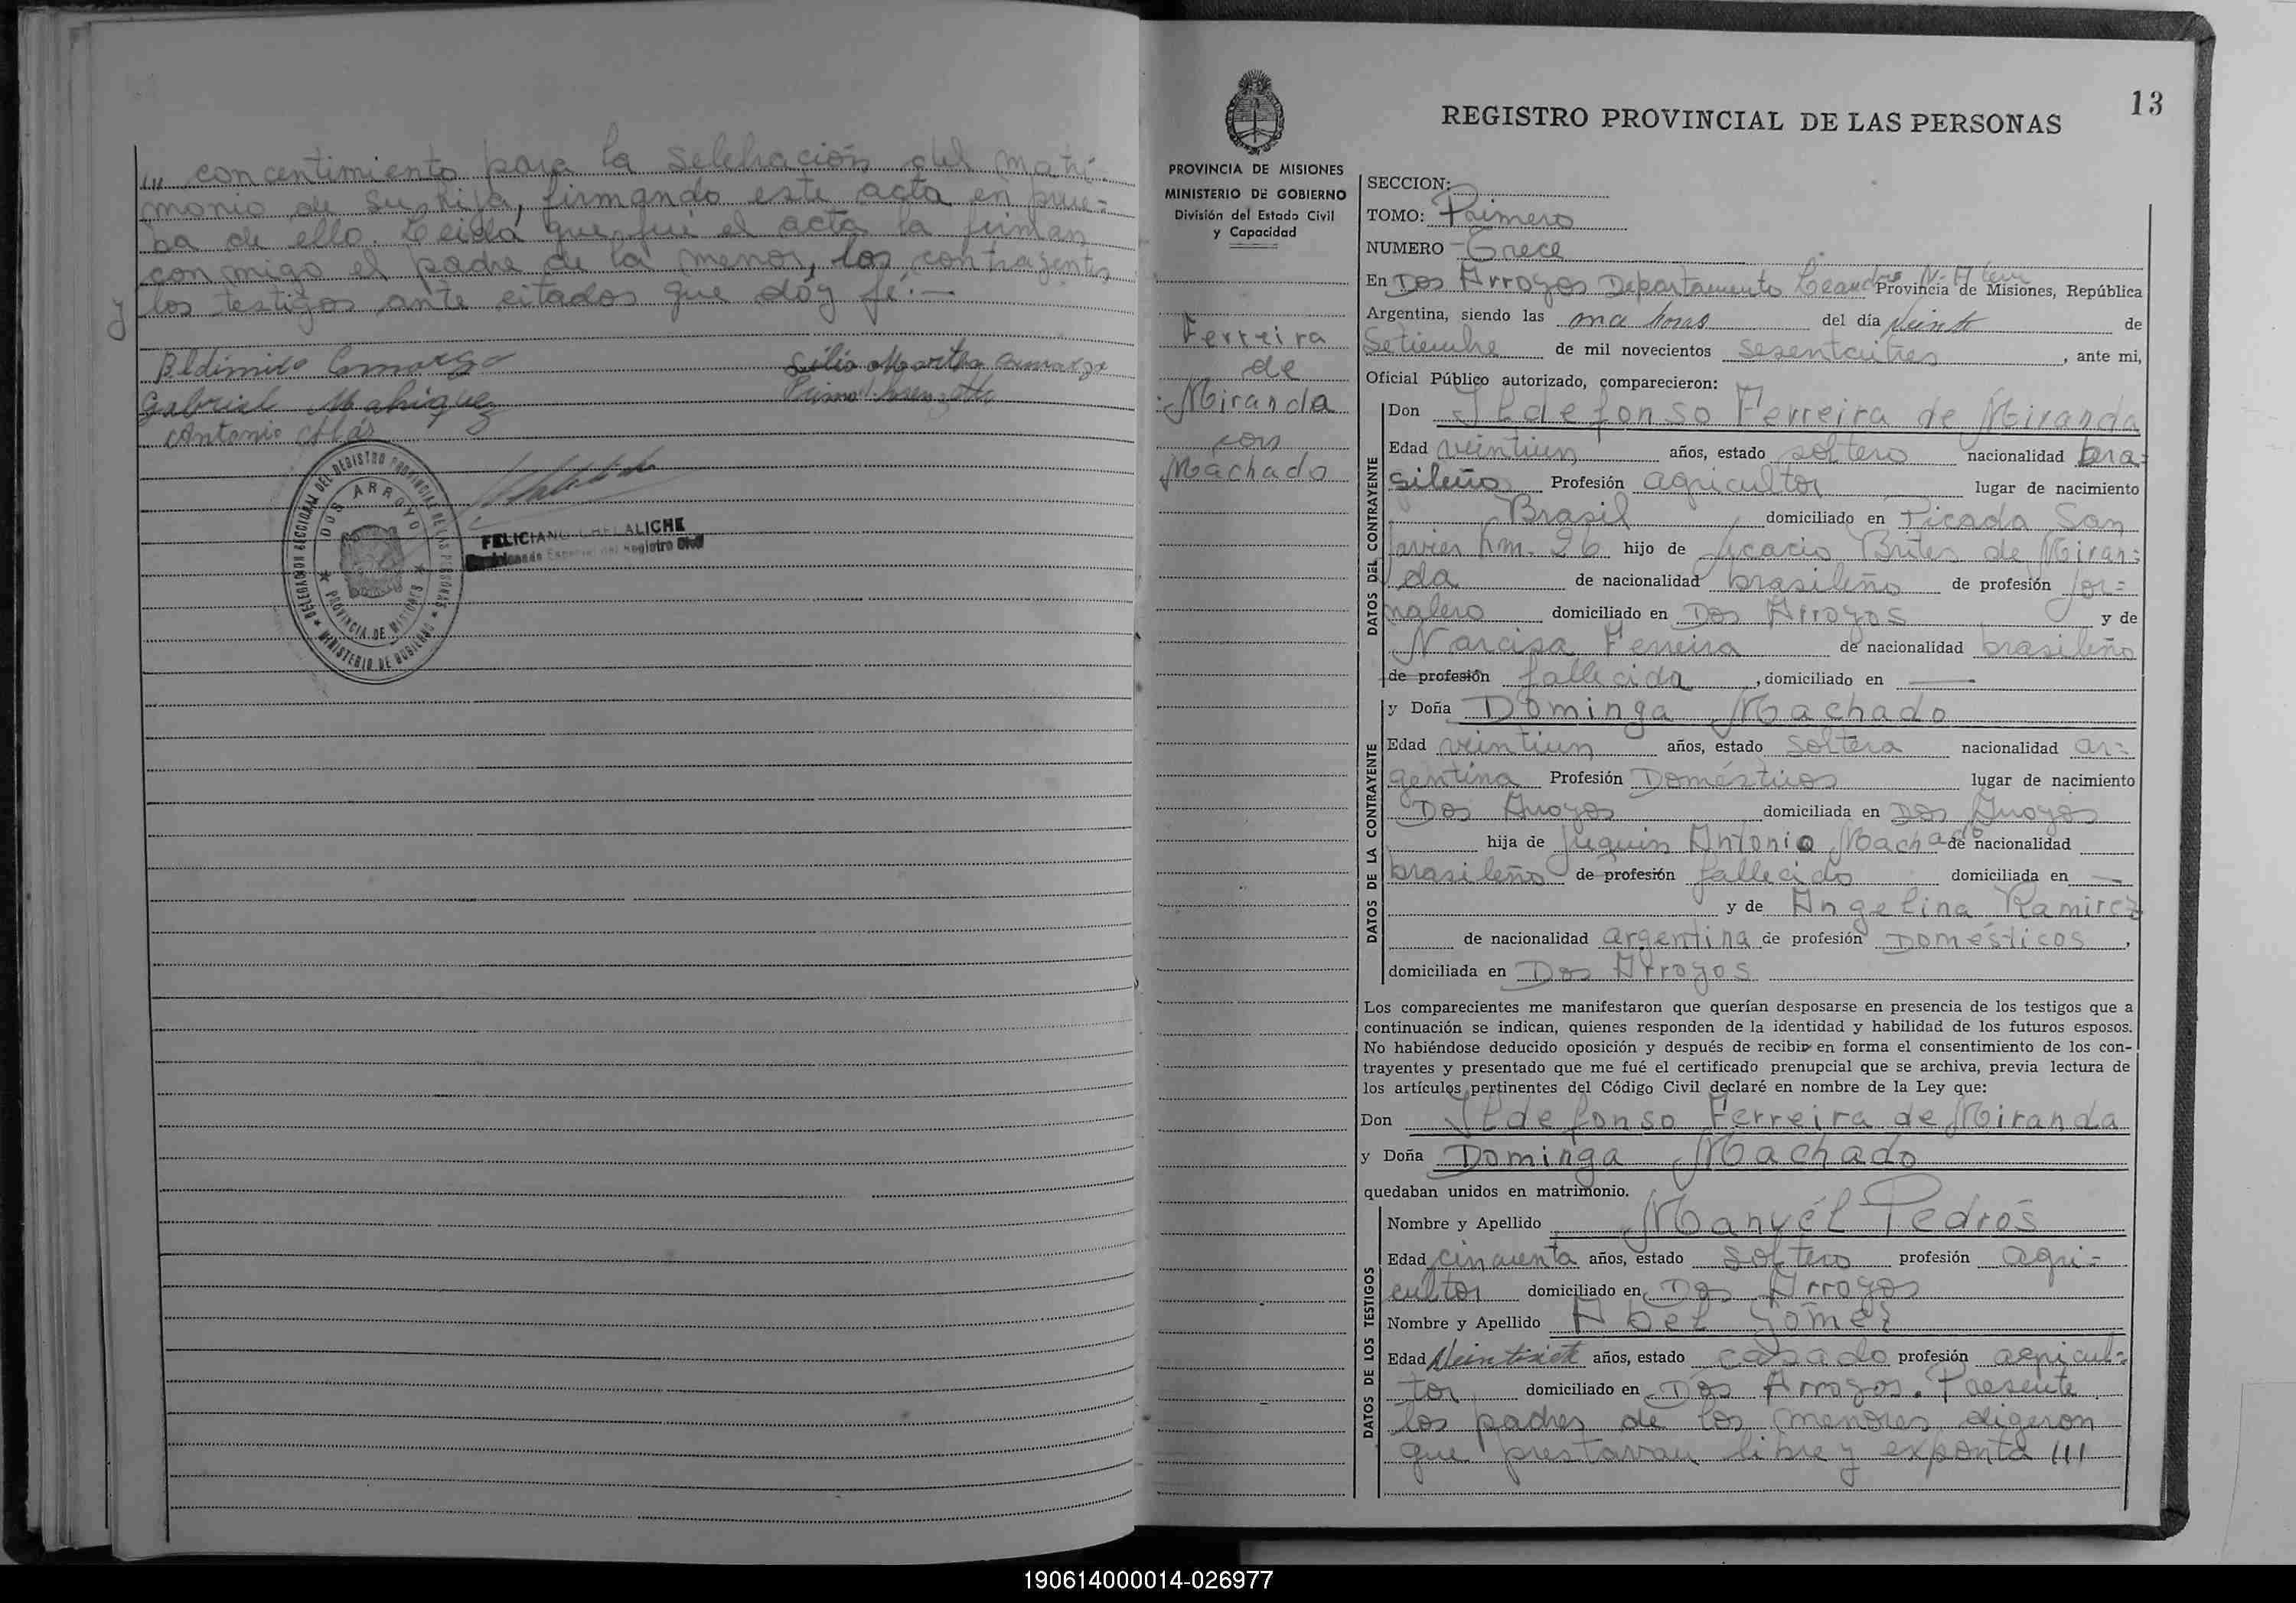 /// concentimiento para la selebración del matri-
monio de su hija, firmando este acta en prue-
ba de ello. Leida que fué el acta la firman
conmigo el padre de la menor, los contrayentes
y los testigos ante citados que dóy fé.-
Gabriel
Antonio
DELEGACION SECCIONAL DEL REGISTRO PROVINCIAL DE LAS PERSONAS
DOS ARROYOS
PROVINCIA DE MISIONES
MINISTERIO DE GOBIERNO
FELICIANO CHELALICHE
Especial del Registro Civil
13
REGISTRO PROVINCIAL DE LAS PERSONAS
PROVINCIA DE MISIONES
MINISTERIO DE GOBIERNO
División del Estado Civil
y Capacidad
Ferreira
de
Miranda
con
Machado
SECCION:
TOMO: Primero
NUMERO Trece
En Dos Arroyos Departamento Leandro N. Alem Provincia de Misiones, República
Argentina, siendo las once horas del día veinte de
Setiembre de mil novecientos sesentaitres, ante mi,
Oficial Público autorizado, comparecieron:
DATOS DEL CONTRAYENTE
Don Ildefonso Ferreira de Miranda
Edad veintiun años, estado soltero nacionalidad bra=
sileño Profesión agricultor lugar de nacimiento
Brasil domiciliado en Picada San
Javier km. 26 hijo de Acacio Brites de Miran=
da de nacionalidad brasileño de profesión jor=
nalero domiciliado en Dos Arroyos y de
Narcisa Ferreira de nacionalidad brasileño
de profesión fallecida, domiciliado en —
DATOS DE LA CONTRAYENTE
y Doña Dominga Machado
Edad veintiun años, estado soltera nacionalidad ar=
gentina Profesión Domésticos lugar de nacimiento
Dos Arroyos domiciliada en Dos Arroyos
hija de Juquin Antonio Machado de nacionalidad
brasileño de profesión fallecido domiciliada en —
y de Angelina Ramirez
de nacionalidad argentina de profesión Domésticos,
domiciliada en Dos Arroyos
Los comparecientes me manifestaron que querían desposarse en presencia de los testigos que a
continuación se indican, quienes responden de la identidad y habilidad de los futuros esposos.
No habiéndose deducido oposición y después de recibir en forma el consentimiento de los con-
trayentes y presentado que me fué el certificado prenupcial que se archiva, previa lectura de
los artículos pertinentes del Código Civil declaré en nombre de la Ley que:
Don Ildefonso Ferreira de Miranda
y Doña Dominga Machado
quedaban unidos en matrimonio.
DATOS DE LOS TESTIGOS
Nombre y Apellido Manuél Pedros
Edad cincuenta años, estado soltero profesión agri=
cultor domiciliado en Dos Arroyos
Nombre y Apellido Abel Gomez
Edad Veintisiete años, estado casado profesión agricul=
tor domiciliado en Dos Arroyos. Presente
los padres de los menores digeron
que prestavan libre y exponta ///
190614000014-026977